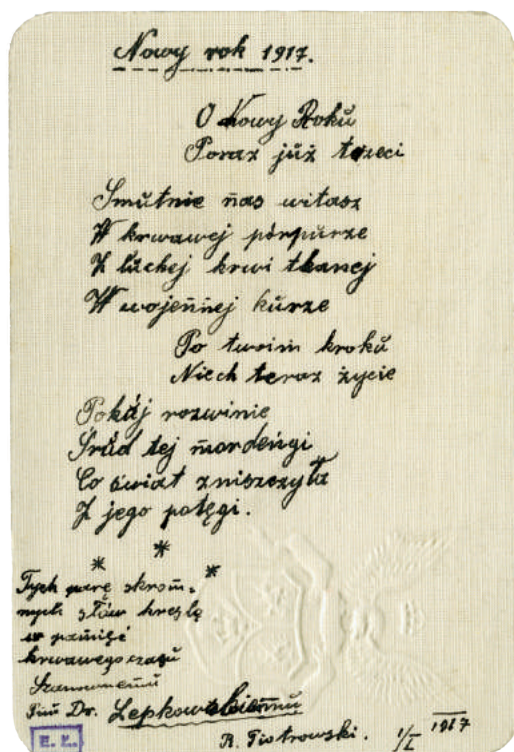 Nowy rok 1917.
O Nowy Roku
Poraz już trzeci
Smutnie nas witasz
W krwawej purpurze
Z luckiej krwi tkanej
W wojennej kurze
Po twoim kroku
Niech teraz życie
Pokój rozwinie
Śród tej mordengi
Co świat zniszczyła
Z jego potęgi.
* * *
Tych parę skrom-
nych słów kreślę
w pamięć
krwawego czasu
Szanownemu
Panu Dr. Lepkowskiemu
R. Piotrowski. 1/I 1917
E. Ł.